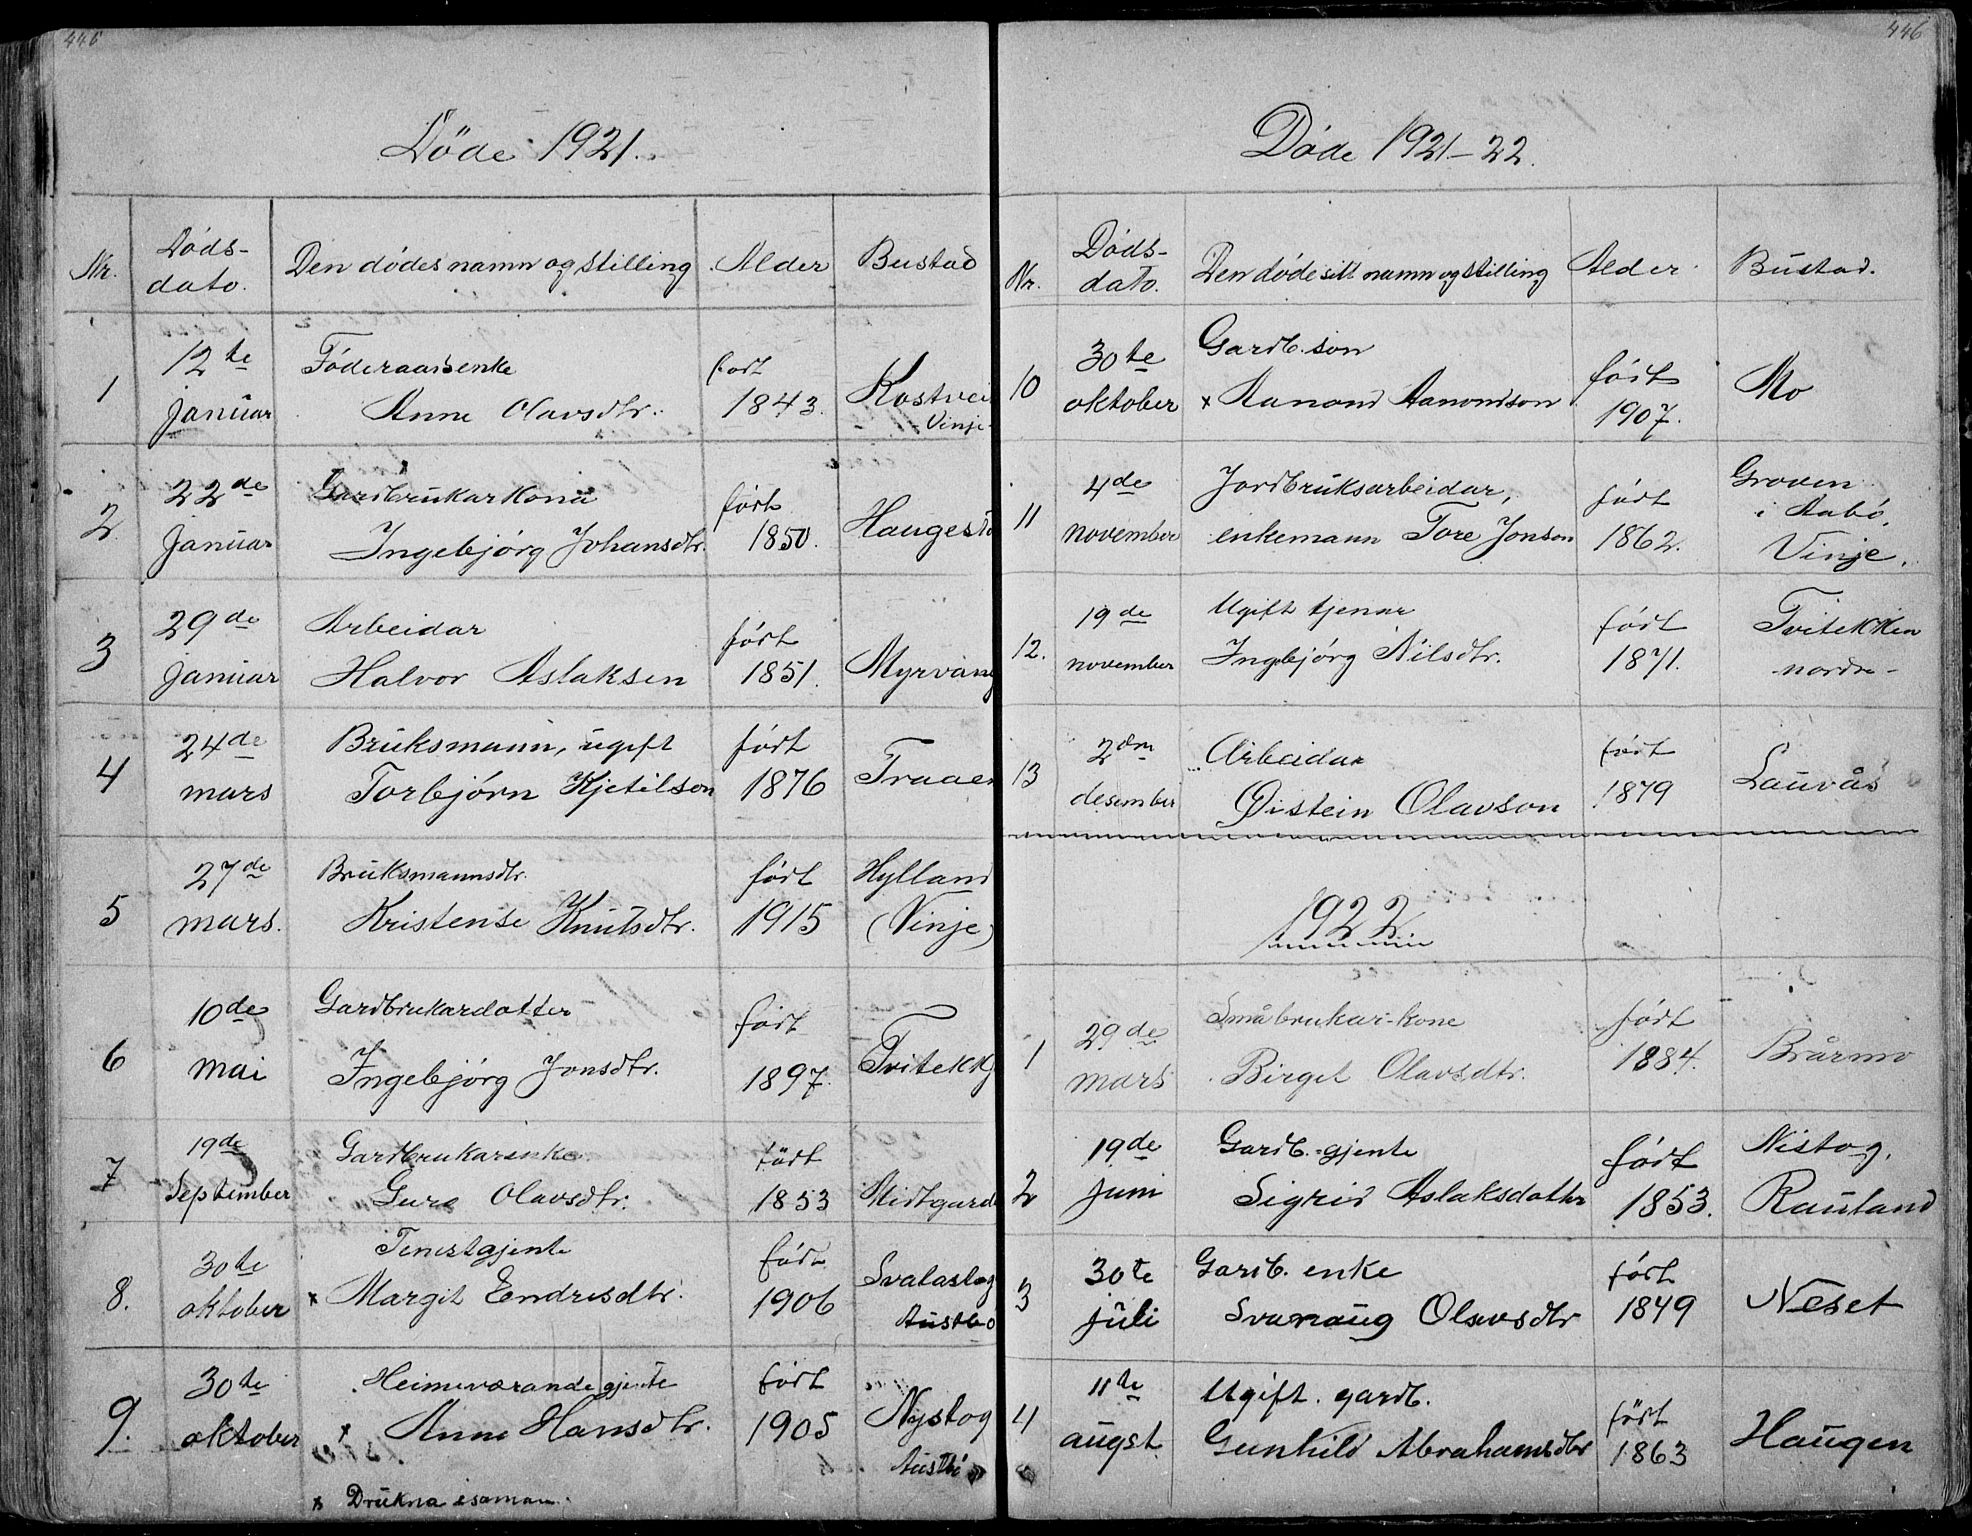 446
Döde 1921.
Nr. Döds- Den dödes namn og stilling Alder Bustad
dato.
1 12te Föderaadsenke född Kostvei
januar Anne Olavsdtr. 1843. Vinje
2 22de Gardbrukarkona född Haugest
januar Ingebjörg Johansdtr. 1850.
3 29de Arbeidar född
januar Halvor Aslaksen 1851. Myrvang
4 24de Bruksmann, ugift född
mars Torbjörn Kjetilson 1876 Traaen
5 27de Bruksmannsdtr. född Hylland
mars. Kristense Knutsdtr. 1915 (Vinje)
6 10de Gardbrukardotter född
mai Ingebjörg Jonsdtr. 1897. Tvitekkj
7 19de Gardbrukarenke född
September Guro Olavsdtr. 1853 Midtgarde
8. 30te Tenestgjente född Svalastog
oktober x Margit Endresdtr. 1906 Austbö
9. 30te Heimeværande gjente född Nystog
oktober x Anne Hansdtr. 1905 Austbö
x Drukna isaman.
446
Döde 1921-22.
Nr. Döds- Den döde sitt namn og stilling Alder Bustad.
dato.
10 30te Gardb. son född Mo
oktober x Aamond Aamondson 1907.
11 4de Jordbruksarbeidar, född Groven
november enkemann Tore Jonson 1862. i Aabö,
Vinje.
12. 19de Ugift tjenar född Tvitekken
november Ingebjörg Nilsdtr. 1871. nordre
13 2den Arbeidar född Lauvås
desember Øistein Olavson 1879
1922
1 29de Småbrukar-kone född
mars Birgit Olavsdtr. 1884. Brårmo
2 19de Gardb.-gjente född Nistog,
juni Sigrid Aslaksdotter 1853. Rauland
3 30te Gardb. enke född Neset
juli Svanaug Olavsdtr 1849
4 11te Ugift. gardb. född Haugen
augst. Gunhild Abrahamsdtr 1863